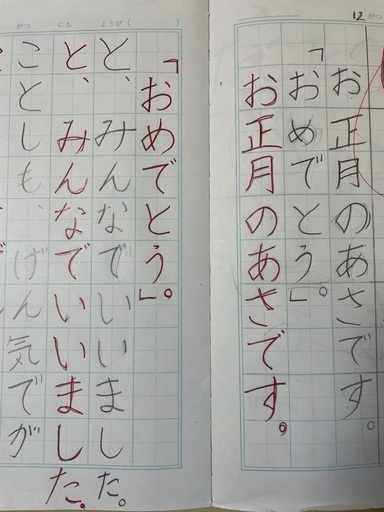 12 がつ
お正月のあさです。
「おめでとう」。
お正月のあさです。
がつ にち ようび( )
「おめでとう」。
と、みんなでいいました。
と、みんなでいいました。
ことしも、げん気でが